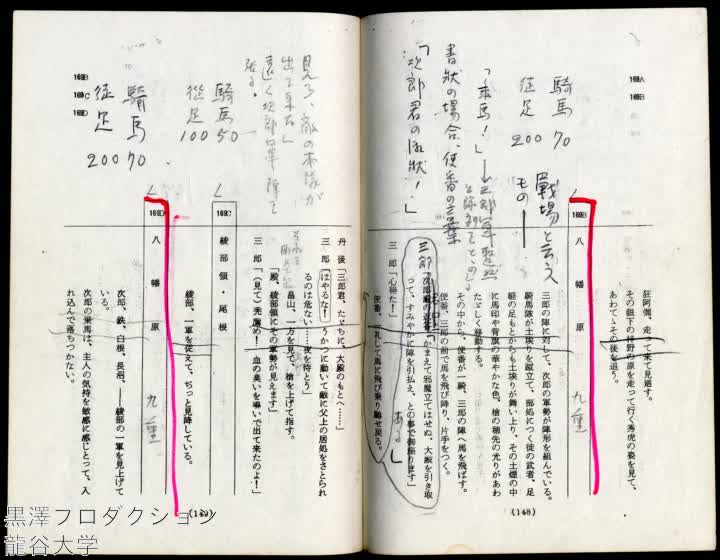 169A
169B
騎馬 70
徒足 200
戦場と云う
もの——
「乗馬！」
書状の場合、使番の言葉
「次郎君の書状！」
狂阿弥、走って来て見廻す。
その眼下の梓野の原を走って行く秀虎の姿を見て、
あわてゝその後を追う。
169B
八幡原
九重
三郎の陣に対して、次郎の軍勢が陣形を組んでいる。
騎馬隊が土埃りを蹴立て、部処につく徒の武者、足
軽の足もとからも土埃りが舞い上り、その土煙の中
に馬印や背旗の華やかな色、槍の穂先の光りがあわ
たゞしく移動する。
その中から、使番が一騎、三郎の陣へ馬を飛ばす。
使番、三郎の前で馬を飛び降り、片手をつく。
かまえて邪魔立てはせぬ、大殿を引き取
って、すみやかに陣を引払え、との事で御座ります」
ある」
三郎「心得た！」
使番、一礼して馬に飛び乗り馳せ戻る。
(148)
見ろ、敵の本隊が
出て来た」
遠く次郎の軍 陣て
騎馬 50
徒足 100
169B
169C
169D
騎馬 70
徒足 200
丹後「三郎君、たゞちに、大殿のもとへ……」
三郎「はやるな！ うかつに動いて敵に父上の居処をさとられ
るのは危ない……夜を待とう」
畠山、一方を見て、槍を上げて指す。
「殿、綾部領にその軍勢が見えます」
三郎「（見て）禿鷹め！ 血の臭いを嗅いで出て来たのよ！」
169C
綾部領・尾根
綾部、一軍を従えて、ぢっと見降している。
169D
八幡原
九重
次郎、鉄、白根、長沼、——綾部の一軍を見上げて
いる。
次郎の乗馬は、主人の気持を敏感に感じとって、入
れ込んで落ちつかない。
(149)
黒澤プロダクション
龍谷大学